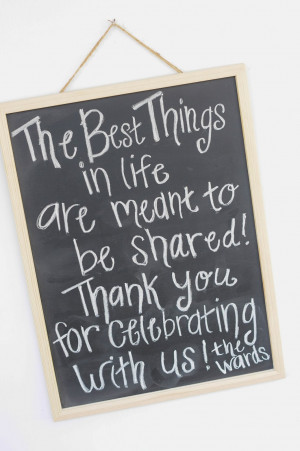 The Best Things
in life
are meant to
be shared!
Thank you
for celebrating
with us! the
wards